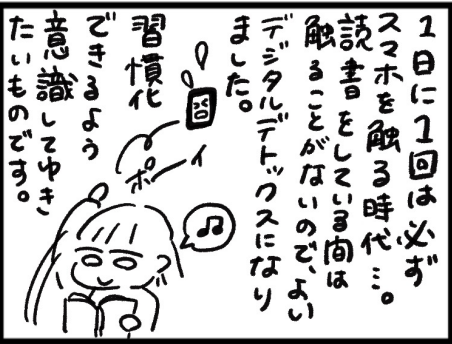 1日に1回は必ず
スマホを触る時代…。
読書をしている間は
触ることがないので、よい
デジタルデトックスになり
ました。
習慣化
できるよう
意識してゆき
たいものです。
ポーイ